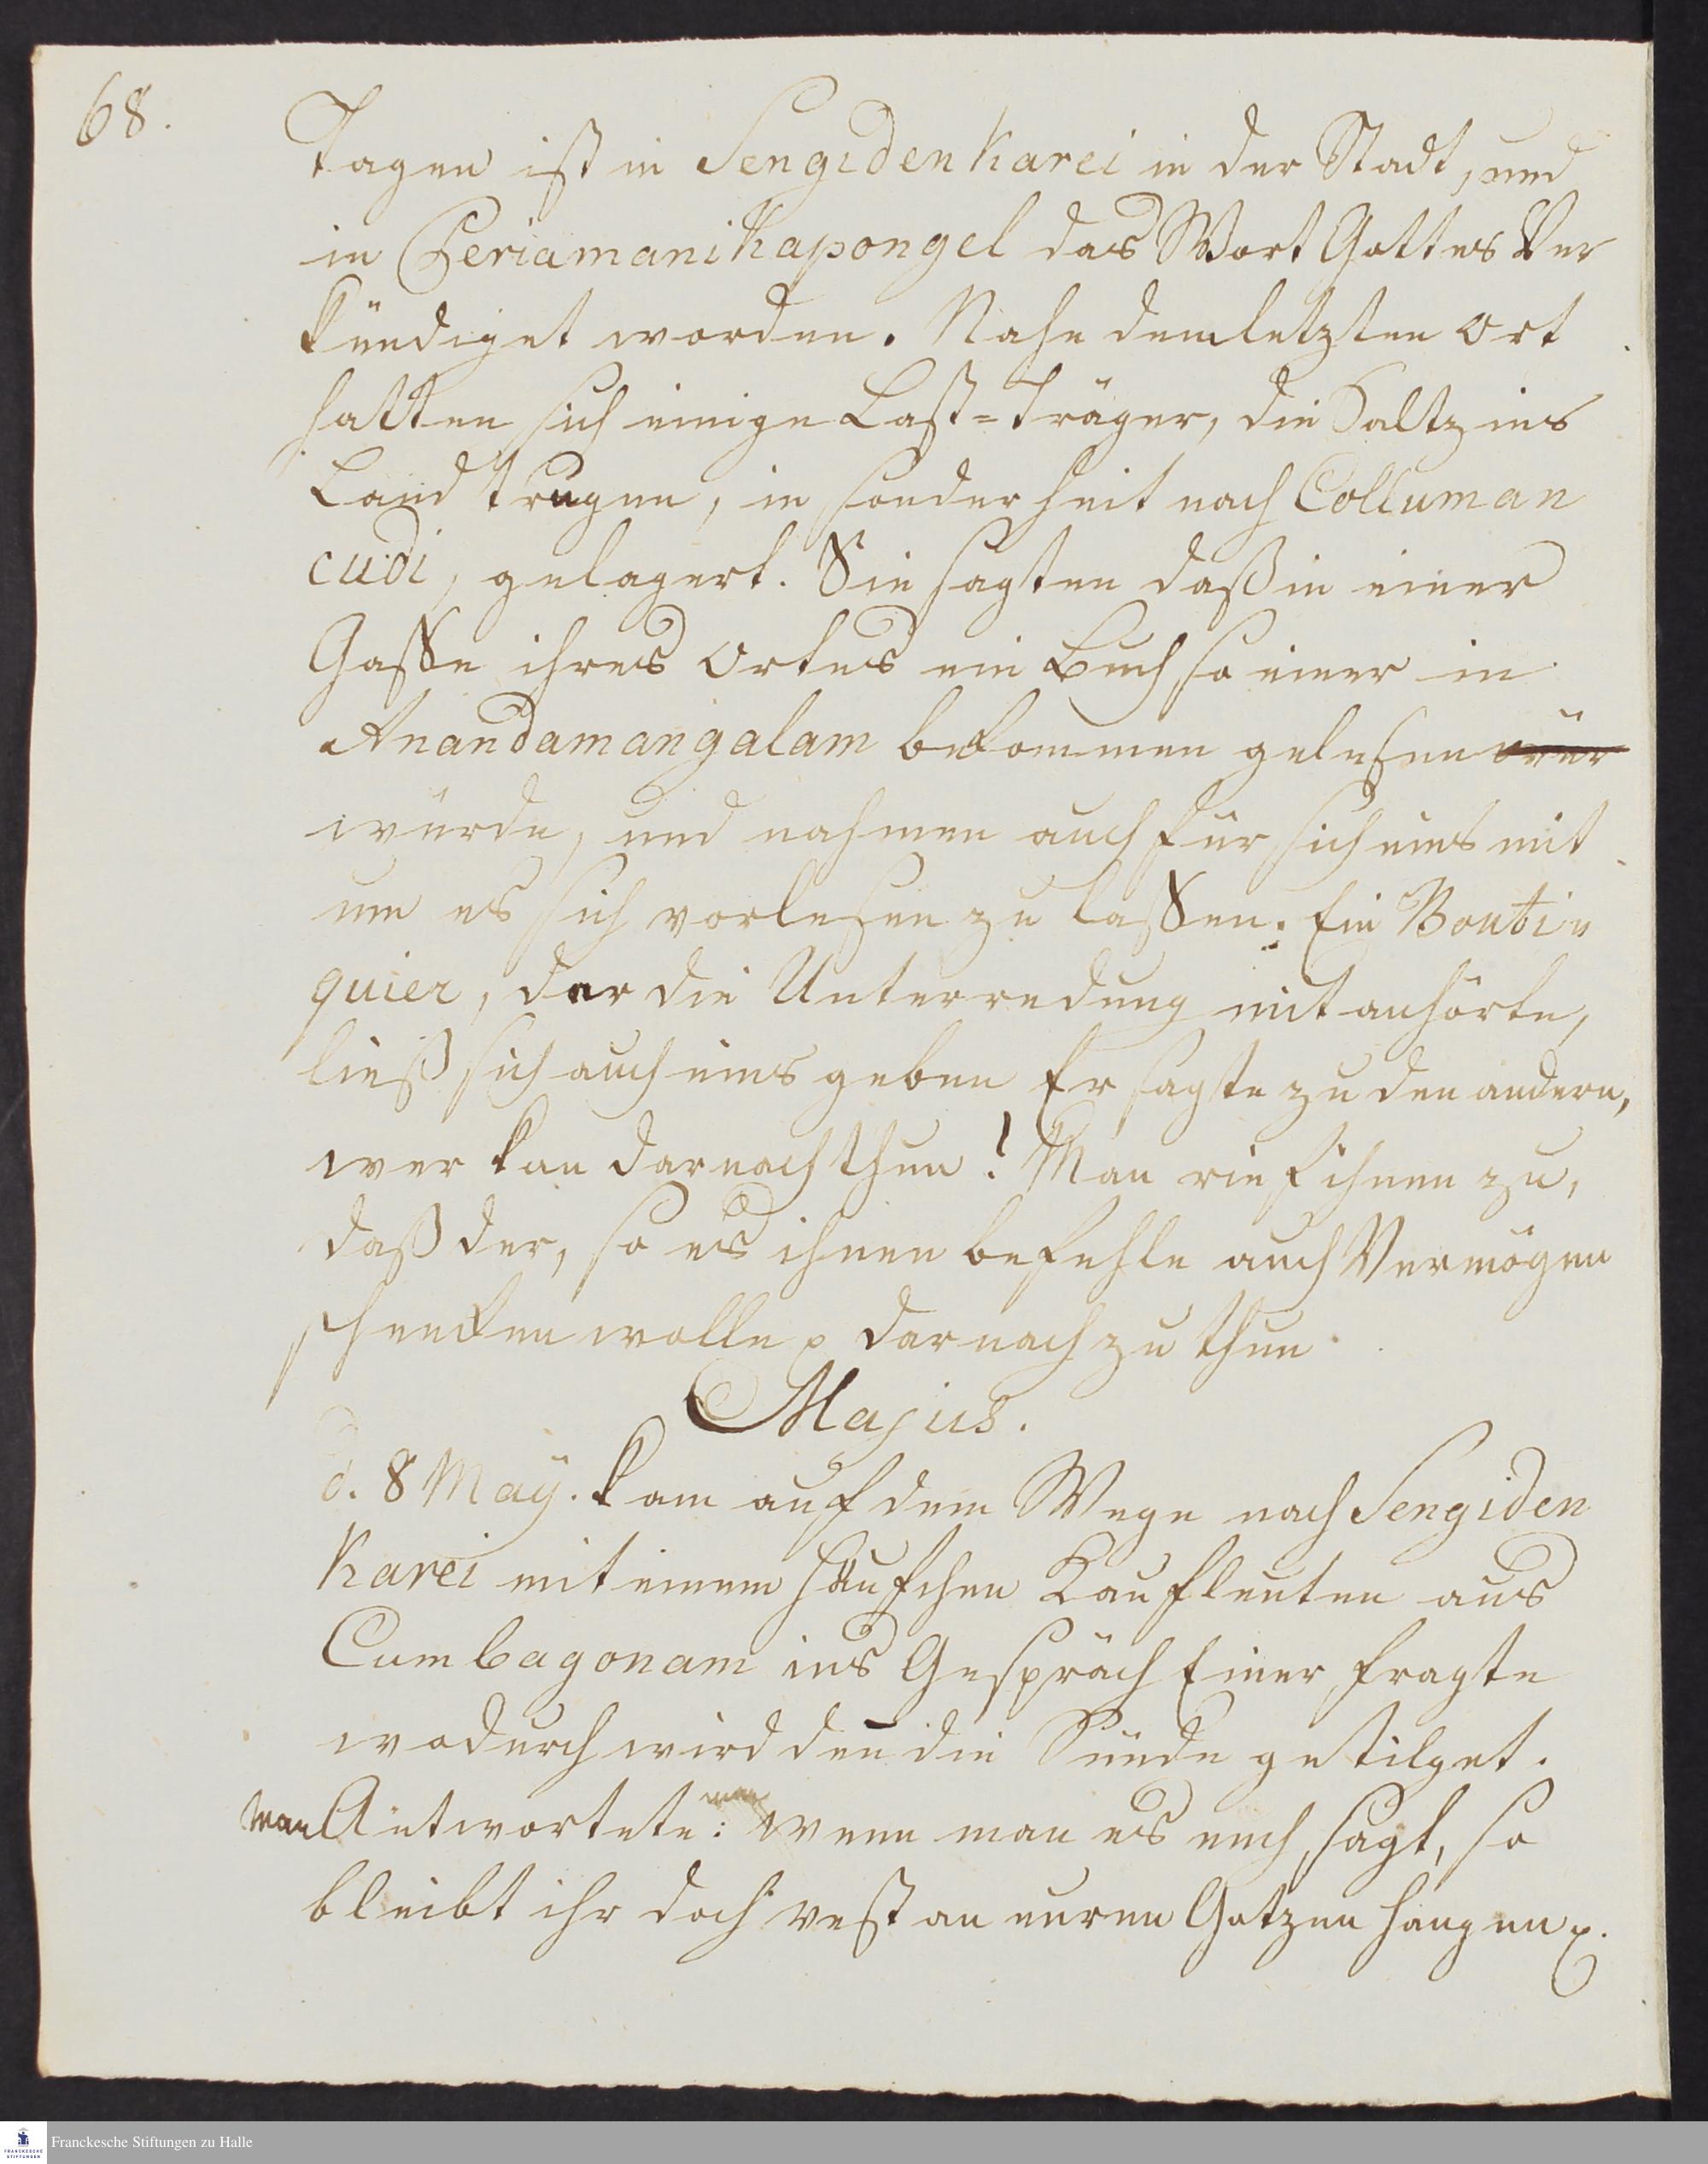 68.
Tagen ist in Sengidenkarei in der Stadt, und
in Periamanikapongel das Wort Gottes Ver
kündiget worden. Nahe dem letzten Ort
hatten sich einige Last=Träger, die Saltz ins
Land trugen, in sonderheit nach Colluman
cudi, gelagert. Sie sagten daß in einer
Gasse ihres Ortes ein Buch so einer in
Anandamangalam bekommen gelesen wür
würde, und nahmen auch für sich eins mit
um es sich vorlesen zu lassen. Ein Bouti
quier, der die Unterredung mit anhörte,
ließ sich auch eins geben Er sagte zu den andern,
wer kan darnach thun! Man rief ihnen zu,
daß der, so es ihnen befehle auch Vermögen
schencken wolle darnach zu thun.
Majus.
d. 8 Maÿ. kam auf dem Wege nach Sengiden
karei mit einem Häufchen Kaufleuten aus
Cumbagonam ins Gespräch Einer fragte
wodurch wird den̄ die Sünde getilget.
man Antwortete: wenn man es euch sagt, so
bleibt ihr doch vest an euren Gotzen hangen p.
Franckesche Stiftungen zu Halle
FRANCKESCHE
STIFTUNGEN